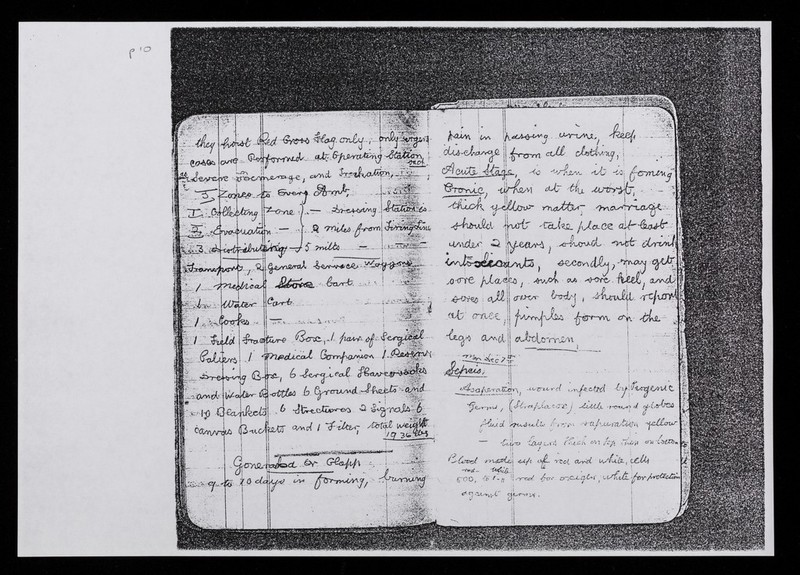 p 10
they hoist Red Cross Flag only, only urgent
cases are Performed at Operating Station
Severe Hoemerage, and Trachation,
3 Zones to Every Amt,
1 Collecting Zone — Dressing Stations
2 Evacuation — 2 miles from Firing Line
3 Distributing — 5 mills —
Transport, 2 General Service Waggons
1 Medical Store Cart
1 Water Cart
1 Cooks —
1 Field Fracture Box, 1 pair of Sergical
Paliers 1 Medical Companion 1 Reserve
Dressing Box, 6 Sergical Haversacks
and Water Bottles 6 Ground Sheets and
12 Blankets 6 Strectures 2 Signals 6
Canvas Buckets and 1 Filter, total weight
1936 lbs
Gonerahed Or Glapp
9 to 10 days in forming, burning
pain in passing urine, keep
discharge from all clothing,
Acute Stage, is when it is foming
Cronic, when at the worst,
thick yellow matter, marriage
should not take place at least
under 2 years, shoud not drink
intoxicants, secondly, may get
sore places, such as sore heel, and
sores all over body, should report
at once, pimples form on the
legs and abdomen,
Mon Dec 7th
Sepsis.
wound infected by Piogenic
Germs, little round globes
fluid results from yellow
— two layers thick on top thin on bottom
Blood made up of red and white, cells
red white
500, to 1 red for oxeighs, white for protection
against germs.